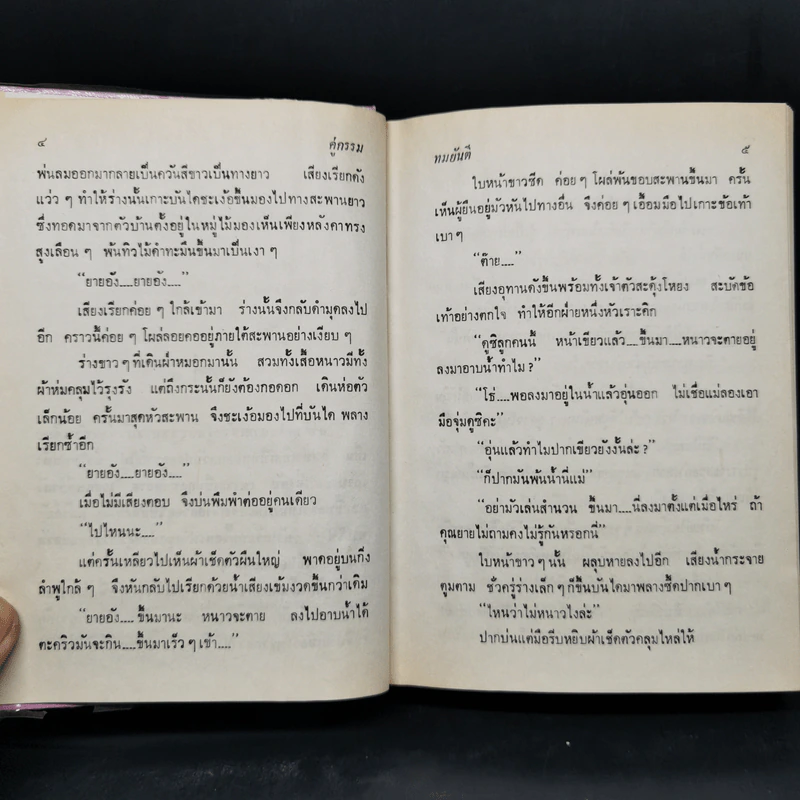 ๔ คู่กรรม
พ่นลมออกมากลายเป็นควันสีขาวเป็นทางยาว เสียงเรียกดัง
แว่ว ๆ ทำให้ร่างนั้นเกาะบันไดชะเง้อขึ้นมองไปทางสะพานยาว
ซึ่งทอดมาจากตัวบ้านตั้งอยู่ในหมู่ไม้มองเห็นเพียงหลังคาทรง
สูงเลือน ๆ พ้นทิวไม้ดำทะมึนขึ้นมาเป็นเงา ๆ
“ยายอัง....ยายอัง....”
เสียงเรียกค่อย ๆ ใกล้เข้ามา ร่างนั้นจึงกลับดำมุดลงไป
อีก คราวนี้ค่อย ๆ โผล่ลอยคออยู่ภายใต้สะพานอย่างเงียบ ๆ
ร่างขาว ๆ ที่เดินฝ่าหมอกมานั้น สวมทั้งเสื้อหนาวมีทั้ง
ผ้าห่มคลุมไว้รุงรัง แต่ถึงกระนั้นก็ยังต้องกอดอก เดินห่อตัว
เล็กน้อย ครั้นมาสุดหัวสะพาน จึงชะเง้อมองไปที่บันได พลาง
เรียกซ้ำอีก
“ยายอัง....ยายอัง....”
เมื่อไม่มีเสียงตอบ จึงบ่นพึมพำต่ออยู่คนเดียว
“ไปไหนนะ....”
แต่ครั้นเหลียวไปเห็นผ้าเช็ดตัวผืนใหญ่ พาดอยู่บนกิ่ง
ลำพูใกล้ ๆ จึงหันกลับไปเรียกด้วยน้ำเสียงเข้มงวดขึ้นกว่าเดิม
“ยายอัง....ขึ้นมานะ หนาวจะตาย ลงไปอาบน้ำได้
ตะคริวมันจะกิน....ขึ้นมาเร็ว ๆ เข้า....”
ทมยันตี ๕
ใบหน้าขาวซีด ค่อย ๆ โผล่พ้นขอบสะพานขึ้นมา ครั้น
เห็นผู้ยืนอยู่มัวหันไปทางอื่น จึงค่อย ๆ เอื้อมมือไปเกาะข้อเท้า
เบา ๆ
“ต๊าย....”
เสียงอุทานดังขึ้นพร้อมทั้งเจ้าตัวสะดุ้งโหยง สะบัดข้อ
เท้าอย่างตกใจ ทำให้อีกฝ่ายหนึ่งหัวเราะคิก
“ดูซิลูกคนนี้ หน้าเขียวแล้ว....ขึ้นมา....หนาวจะตายอยู่
ลงมาอาบน้ำทำไม ?”
“โธ่....พอลงมาอยู่ในน้ำแล้วอุ่นออก ไม่เชื่อแม่ลองเอา
มือจุ่มดูซิคะ”
“อุ่นแล้วทำไมปากเขียวยังงั้นล่ะ ?”
“ก็ปากมันพ้นน้ำนี่แม่”
“อย่ามัวเล่นสำนวน ขึ้นมา....นี่ลงมาตั้งแต่เมื่อไหร่ ถ้า
คุณยายไม่ถามคงไม่รู้กันหรอกนี่”
ใบหน้าขาว ๆ นั้น ผลุบหายลงไปอีก เสียงน้ำกระจาย
ตูมตาม ชั่วครู่ร่างเล็ก ๆ ก็ขึ้นบันไดมาพลางซี้ดปากเบา ๆ
“ไหนว่าไม่หนาวไงล่ะ”
ปากบ่นแต่มือรีบหยิบผ้าเช็ดตัวคลุมไหล่ให้